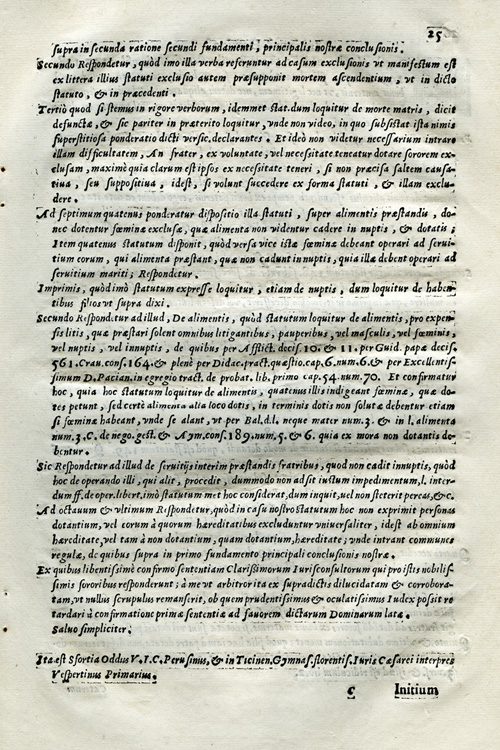 25
supra in secunda ratione secundi fundamenti, principalis nostræ conclusionis.
Secundo Respondetur, quòd imo illa verba referuntur ad casum exclusionis vt manifestum est
ex littera illius statuti exclusio autem præsupponit mortem ascendentium, vt in dicto
statuto, & in præcedenti.
Tertiò quod si stemus in rigore verborum, idemmet stat.dum loquitur de morte matris, dicit
defunctæ, & sic pariter in præterito loquitur, vnde non video, in quo subsistat ista nimis
superstitiosa ponderatio dicti versic.declarantes. Et ideò non videtur necessarium intrare
illam difficultatem, An frater, ex voluntate, vel necessitate teneatur dotare sororem ex-
clusam, maximè quia clarum est ipsos ex necessitate teneri, si non præcisa saltem causa-
tiua, seu suppositiua, idest, si volunt succedere ex forma statuti, & illam exclu-
dere.
Ad septimum quatenus ponderatur dispositio illa statuti, super alimentis præstandis, do-
nec dotentur fœminæ exclusæ, quæ alimenta non videntur cadere in nuptis, & dotatis;
Item quatenus statutum disponit, quòd versa vice istæ fœminæ debeant operari ad serui-
tium eorum, qui alimenta præstant, quæ non cadunt in nuptis, quia illæ debent operari ad
seruitium mariti; Respondetur.
Imprimis, quòd imò statutum expresse loquitur, etiam de nuptis, dum loquitur de haben-
tibus filios vt supra dixi.
Secundo Respondetur ad illud, De alimentis, quòd statutum loquitur de alimentis, pro expen-
sis litis, quæ præstari solent omnibus litigantibus, pauperibus, vel masculis, vel fœminis,
vel nuptis, vel innuptis, de quibus per Afflict. decis. 10. & 11. per Guid. papæ decis.
561. Crau.cons.164.& plenè per Didac.pract.quæstio.cap.6.num.6.& per Excellentis-
simum D.Pacian.in egregio tract. de probat. lib. primo cap.54.num.70. Et confirmatur
hoc, quia hoc statutum loquitur de alimentis, quatenus illis indigeant fœminæ, quæ do-
tes petunt, sed certè alimenta alia loco dotis, in terminis dotis non solutæ debentur etiam
si fœminæ habeant, vnde se alant, vt per Bal.d.l. neque mater num.3. & in l. alimenta
num.3.C. de nego.gest.& Aym.cons.189.num.5.& 6. quia ex mora non dotantis de-
bentur.
Sic Respondetur ad illud de seruitijs interim præstandis fratribus, quod non cadit innuptis, quòd
hoc de operando illi, qui alit, procedit, dummodo non adsit iustum impedimentum,l. inter-
dum ff.de oper.libert.imò statutum met hoc considerat, dum inquit, vel non steterit per eas, &c.
Ad octauum & vltimum Respondetur, quòd in casu nostro statutum hoc non exprimit personas
dotantium, vel eorum à quorum hæreditatibus excluduntur vniuersaliter, idest ab omnium
hæreditate, vel tam à non dotantium, quam dotantium, hæreditate; vnde intrant communes
regulæ, de quibus supra in primo fundamento principali conclusionis nostræ.
Ex quibus libentissimè confirmo sententiam Clarissimorum Iurisconsultorum qui pro istis nobilis-
simis sororibus responderunt; à me vt arbitror ita ex supradictis dilucidatam & corrobora-
tam, vt nullus scrupulus remanserit, ob quem prudentissimus & oculatissimus Iudex possit re
tardari à confirmatione primæ sententiæ ad fauorem dictarum Dominarum latæ.
Saluo simpliciter.
Ita est Sfortia Oddus V.I.C.Perusinus, & in Ticinen.Gymnas.florentis.Iuris Cæsarei interpres
Vespertinus Primarius.
C
Initium